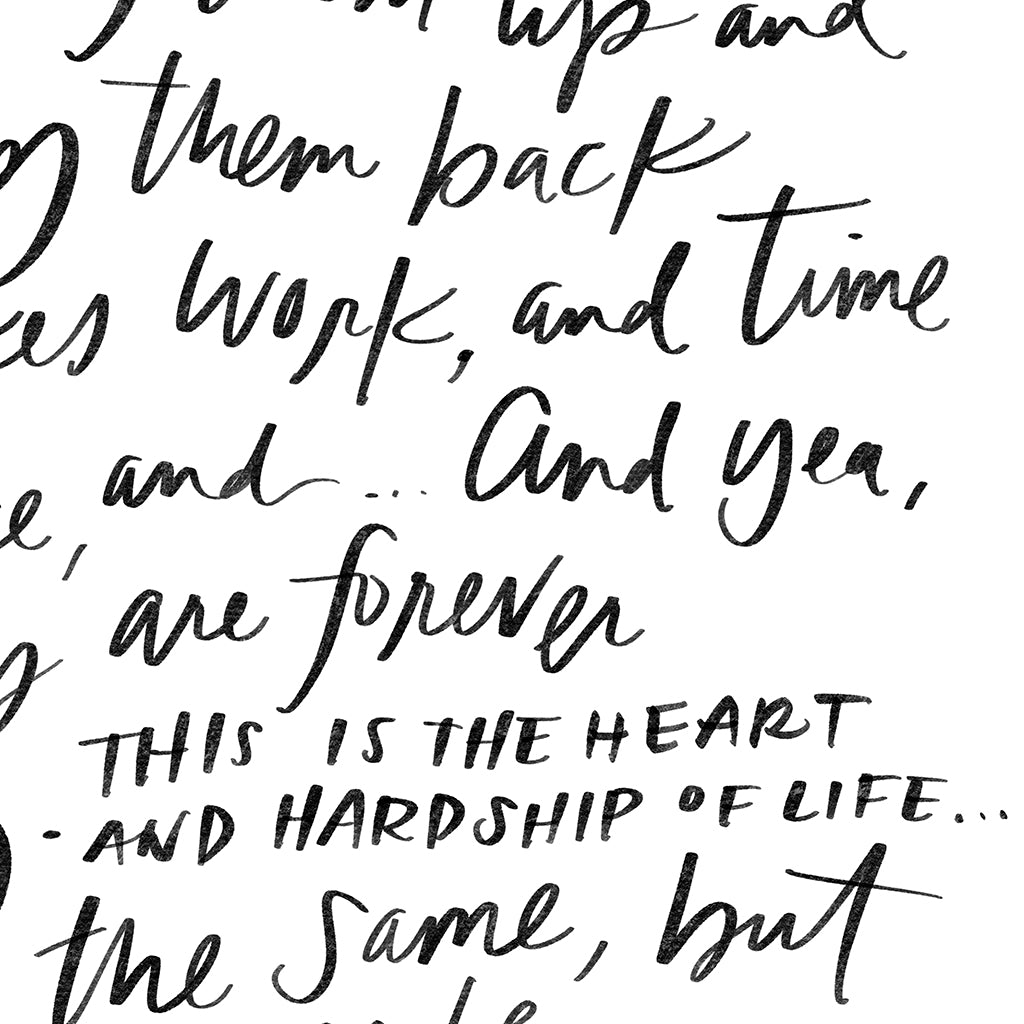 up and
them back
work, and time
and... And yea,
are forever
THIS IS THE HEART
AND HARDSHIP OF LIFE...
the same, but